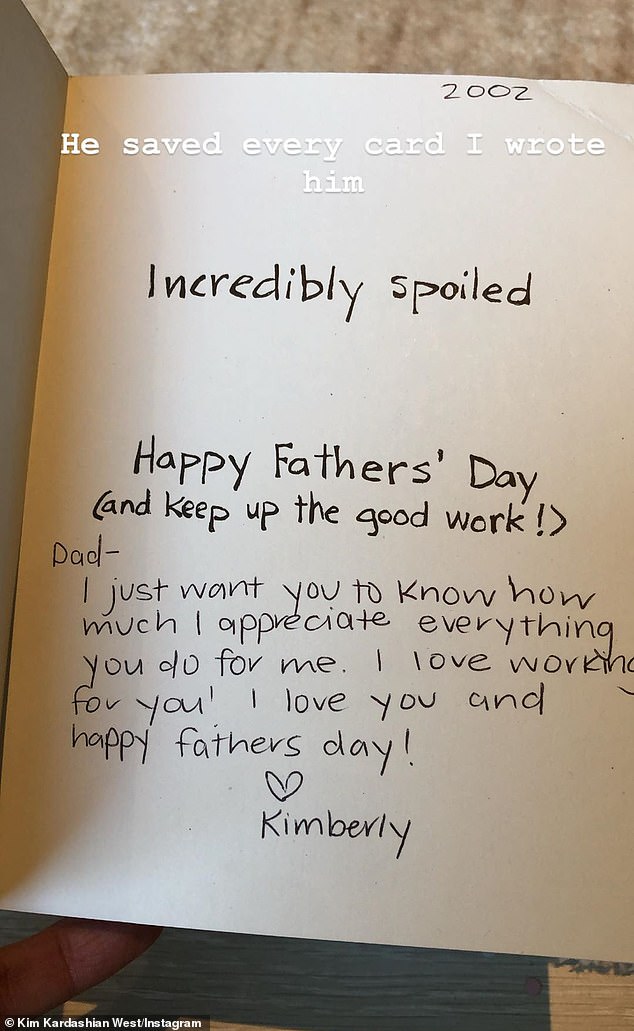 2002
He saved every card I wrote
him
Incredibly spoiled
Happy Fathers' Day
(and keep up the good work!)
Dad-
I just want you to know how
much I appreciate everything
you do for me. I love working
for you! I love you and
happy fathers day!
Kimberly
© Kim Kardashian West/Instagram